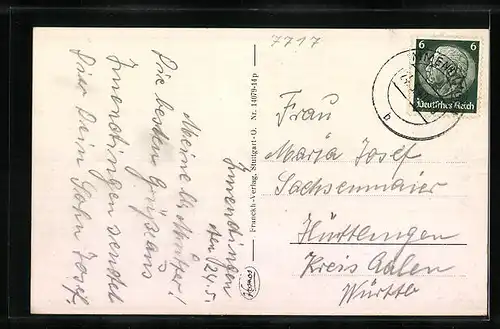 7717
Immendingen
den 24.5.
Meine lb. Mutter!
Die besten Grüße aus
Immendingen sendet
Dir Dein Sohn Josef.
Franckh-Verlag, Stuttgart-O. Nr. 14070-14p
6 6
Deutsches Reich
b
Frau
Maria Josef
Sachsenmaier
Hürtlingen
Kreis Aalen
Württb